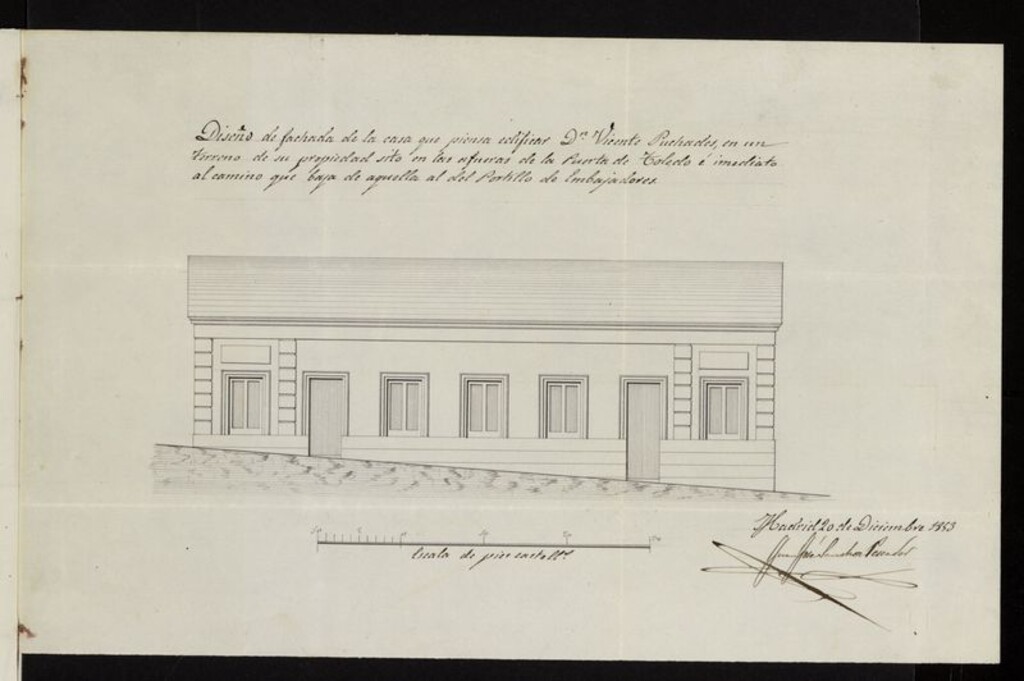 Diseño de fachada de la casa que piensa edificar Dⁿ Vicente Puchades, en un
terreno de su propiedad sito en las afueras de la Puerta de Toledo é imediato
al camino que baja de aquella al del Portillo de Embajadores.
Madrid 20 de Diciembre 1853
Escala de pies castellˢ
Juan José Sanchez Pescador